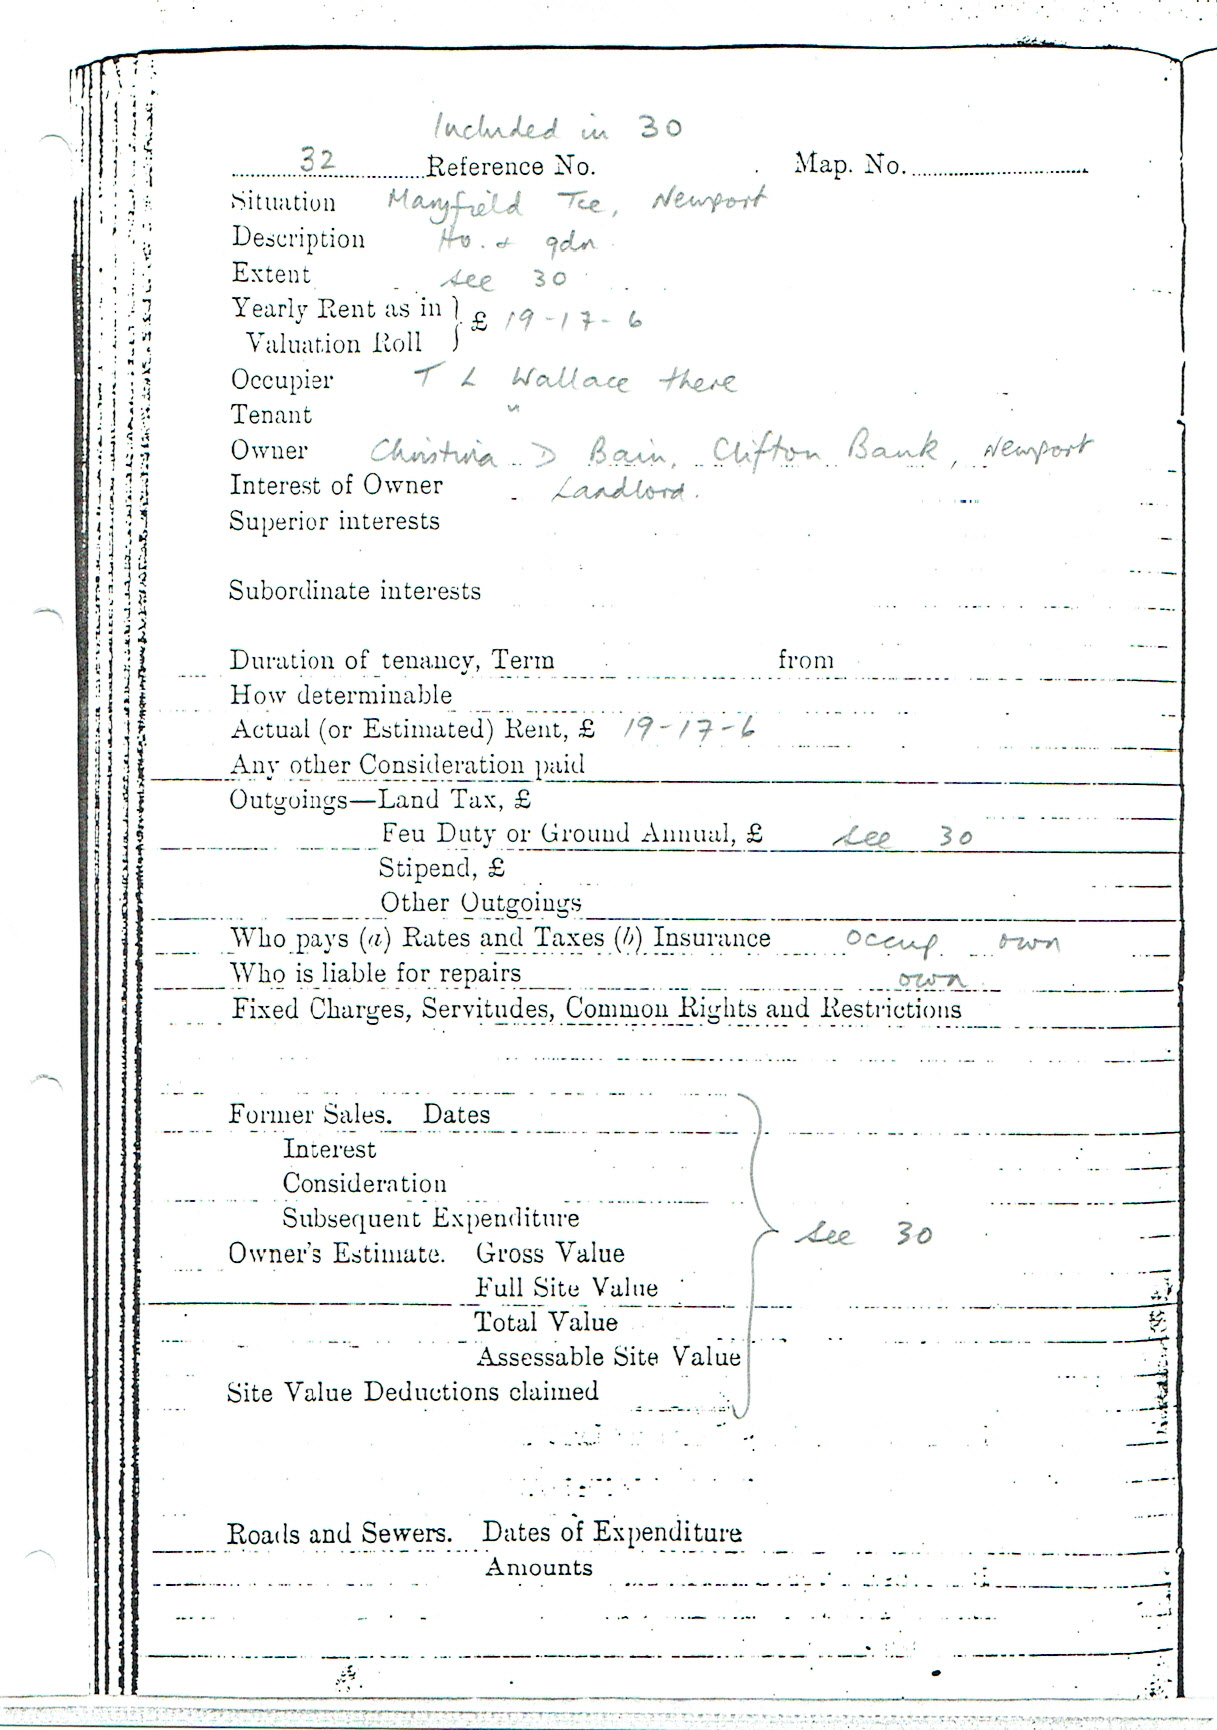 Included in 30
32 Reference No. Map. No.
Situation Maryfield Tce, Newport
Description Ho. & gdn
Extent see 30
Yearly Rent as in
Valuation Roll } £ 19-17-6
Occupier T L Wallace there
Tenant "
Owner Christina D Bain, Clifton Bank, Newport
Interest of Owner Landlord.
Superior interests
Subordinate interests
Duration of tenancy, Term from
How determinable
Actual (or Estimated) Rent, £ 19-17-6
Any other Consideration paid
Outgoings—Land Tax, £
Feu Duty or Ground Annual, £ see 30
Stipend, £
Other Outgoings
Who pays (a) Rates and Taxes (b) Insurance Occup own
Who is liable for repairs own
Fixed Charges, Servitudes, Common Rights and Restrictions
Former Sales. Dates
Interest
Consideration
Subsequent Expenditure see 30
Owner's Estimate. Gross Value
Full Site Value
Total Value
Assessable Site Value
Site Value Deductions claimed
Roads and Sewers. Dates of Expenditure
Amounts